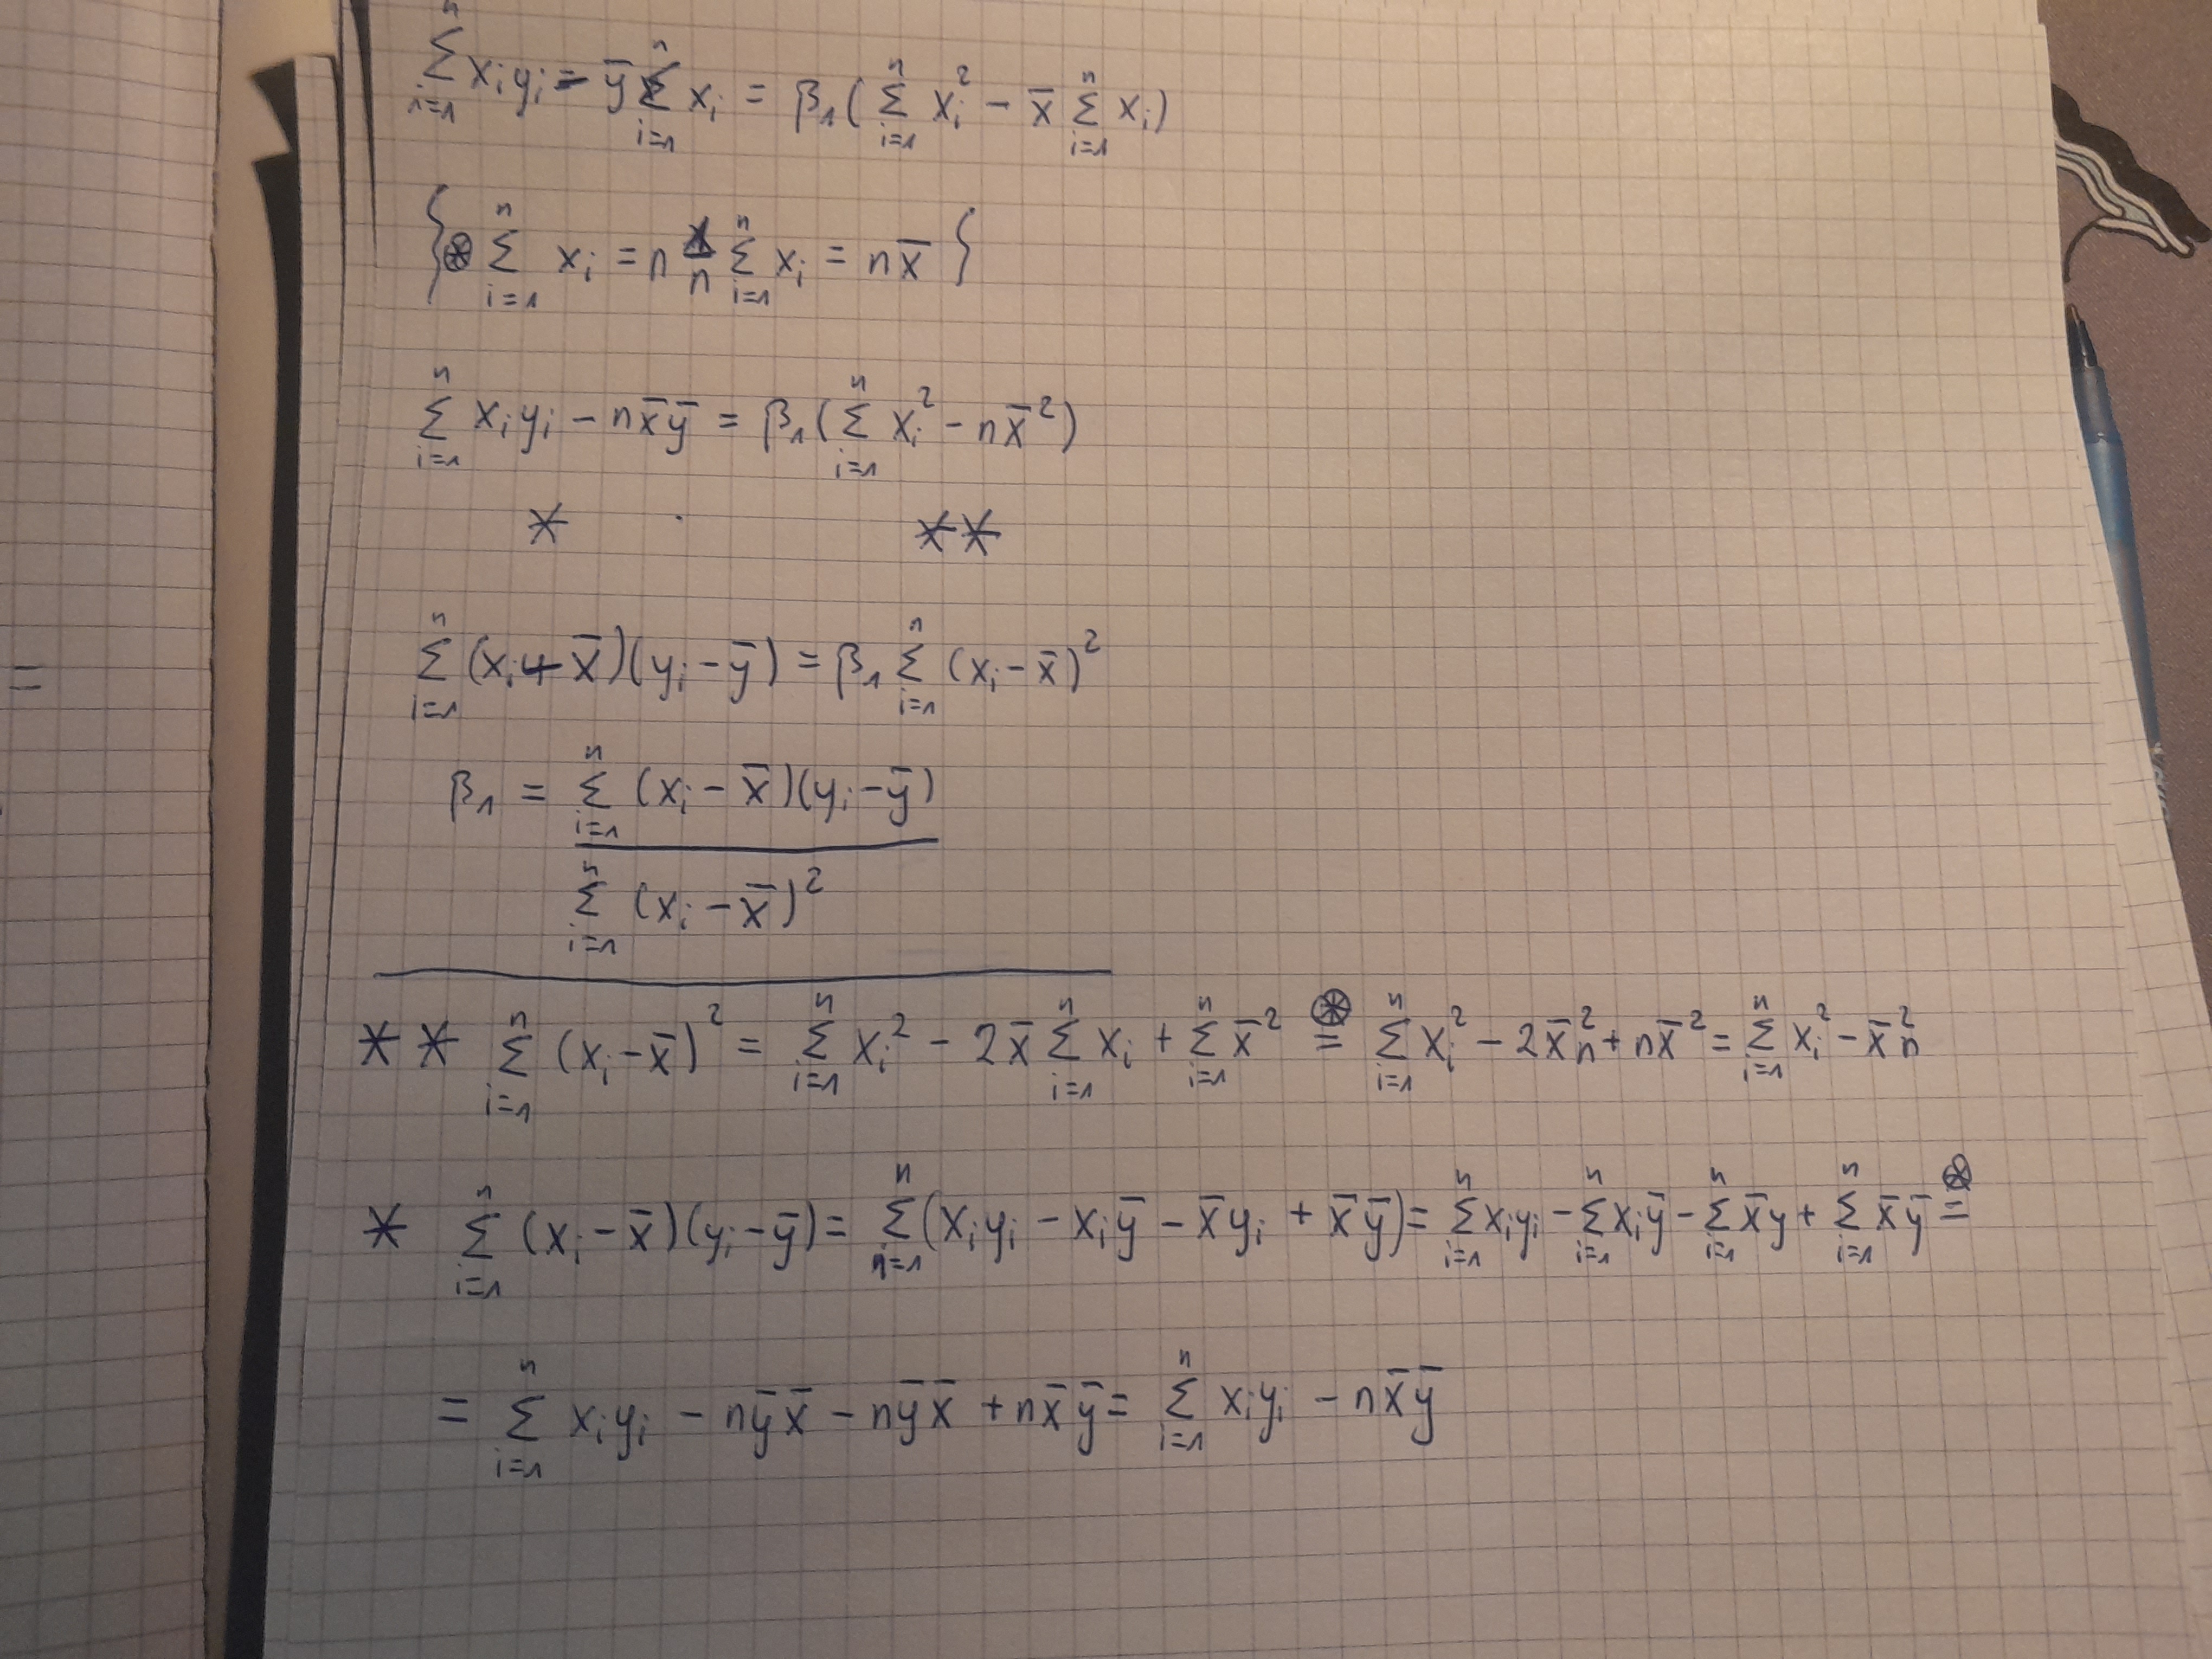 =
∑_{i=1}^{n} x_i y_i − ȳ ∑_{i=1}^{n} x_i = β_1(∑_{i=1}^{n} x_i^2 − x̄ ∑_{i=1}^{n} x_i)
{⊛ ∑_{i=1}^{n} x_i = n 1/n ∑_{i=1}^{n} x_i = n x̄ }
∑_{i=1}^{n} x_i y_i − n x̄ ȳ = β_1(∑_{i=1}^{n} x_i^2 − n x̄^2)
* **
∑_{i=1}^{n} (x_i − x̄)(y_i − ȳ) = β_1 ∑_{i=1}^{n} (x_i − x̄)^2
β_1 = ∑_{i=1}^{n} (x_i − x̄)(y_i − ȳ)
∑_{i=1}^{n} (x_i − x̄)^2
** ∑_{i=1}^{n} (x_i − x̄)^2 = ∑_{i=1}^{n} x_i^2 − 2x̄ ∑_{i=1}^{n} x_i + ∑_{i=1}^{n} x̄^2 ⊛= ∑_{i=1}^{n} x_i^2 − 2x̄^2 n + n x̄^2 = ∑_{i=1}^{n} x_i^2 − x̄^2 n
* ∑_{i=1}^{n} (x_i − x̄)(y_i − ȳ) = ∑_{i=1}^{n} (x_i y_i − x_i ȳ − x̄ y_i + x̄ ȳ) = ∑_{i=1}^{n} x_i y_i − ∑_{i=1}^{n} x_i ȳ − ∑_{i=1}^{n} x̄ y + ∑_{i=1}^{n} x̄ ȳ ⊛=
= ∑_{i=1}^{n} x_i y_i − n ȳ x̄ − n ȳ x̄ + n x̄ ȳ = ∑_{i=1}^{n} x_i y_i − n x̄ ȳ